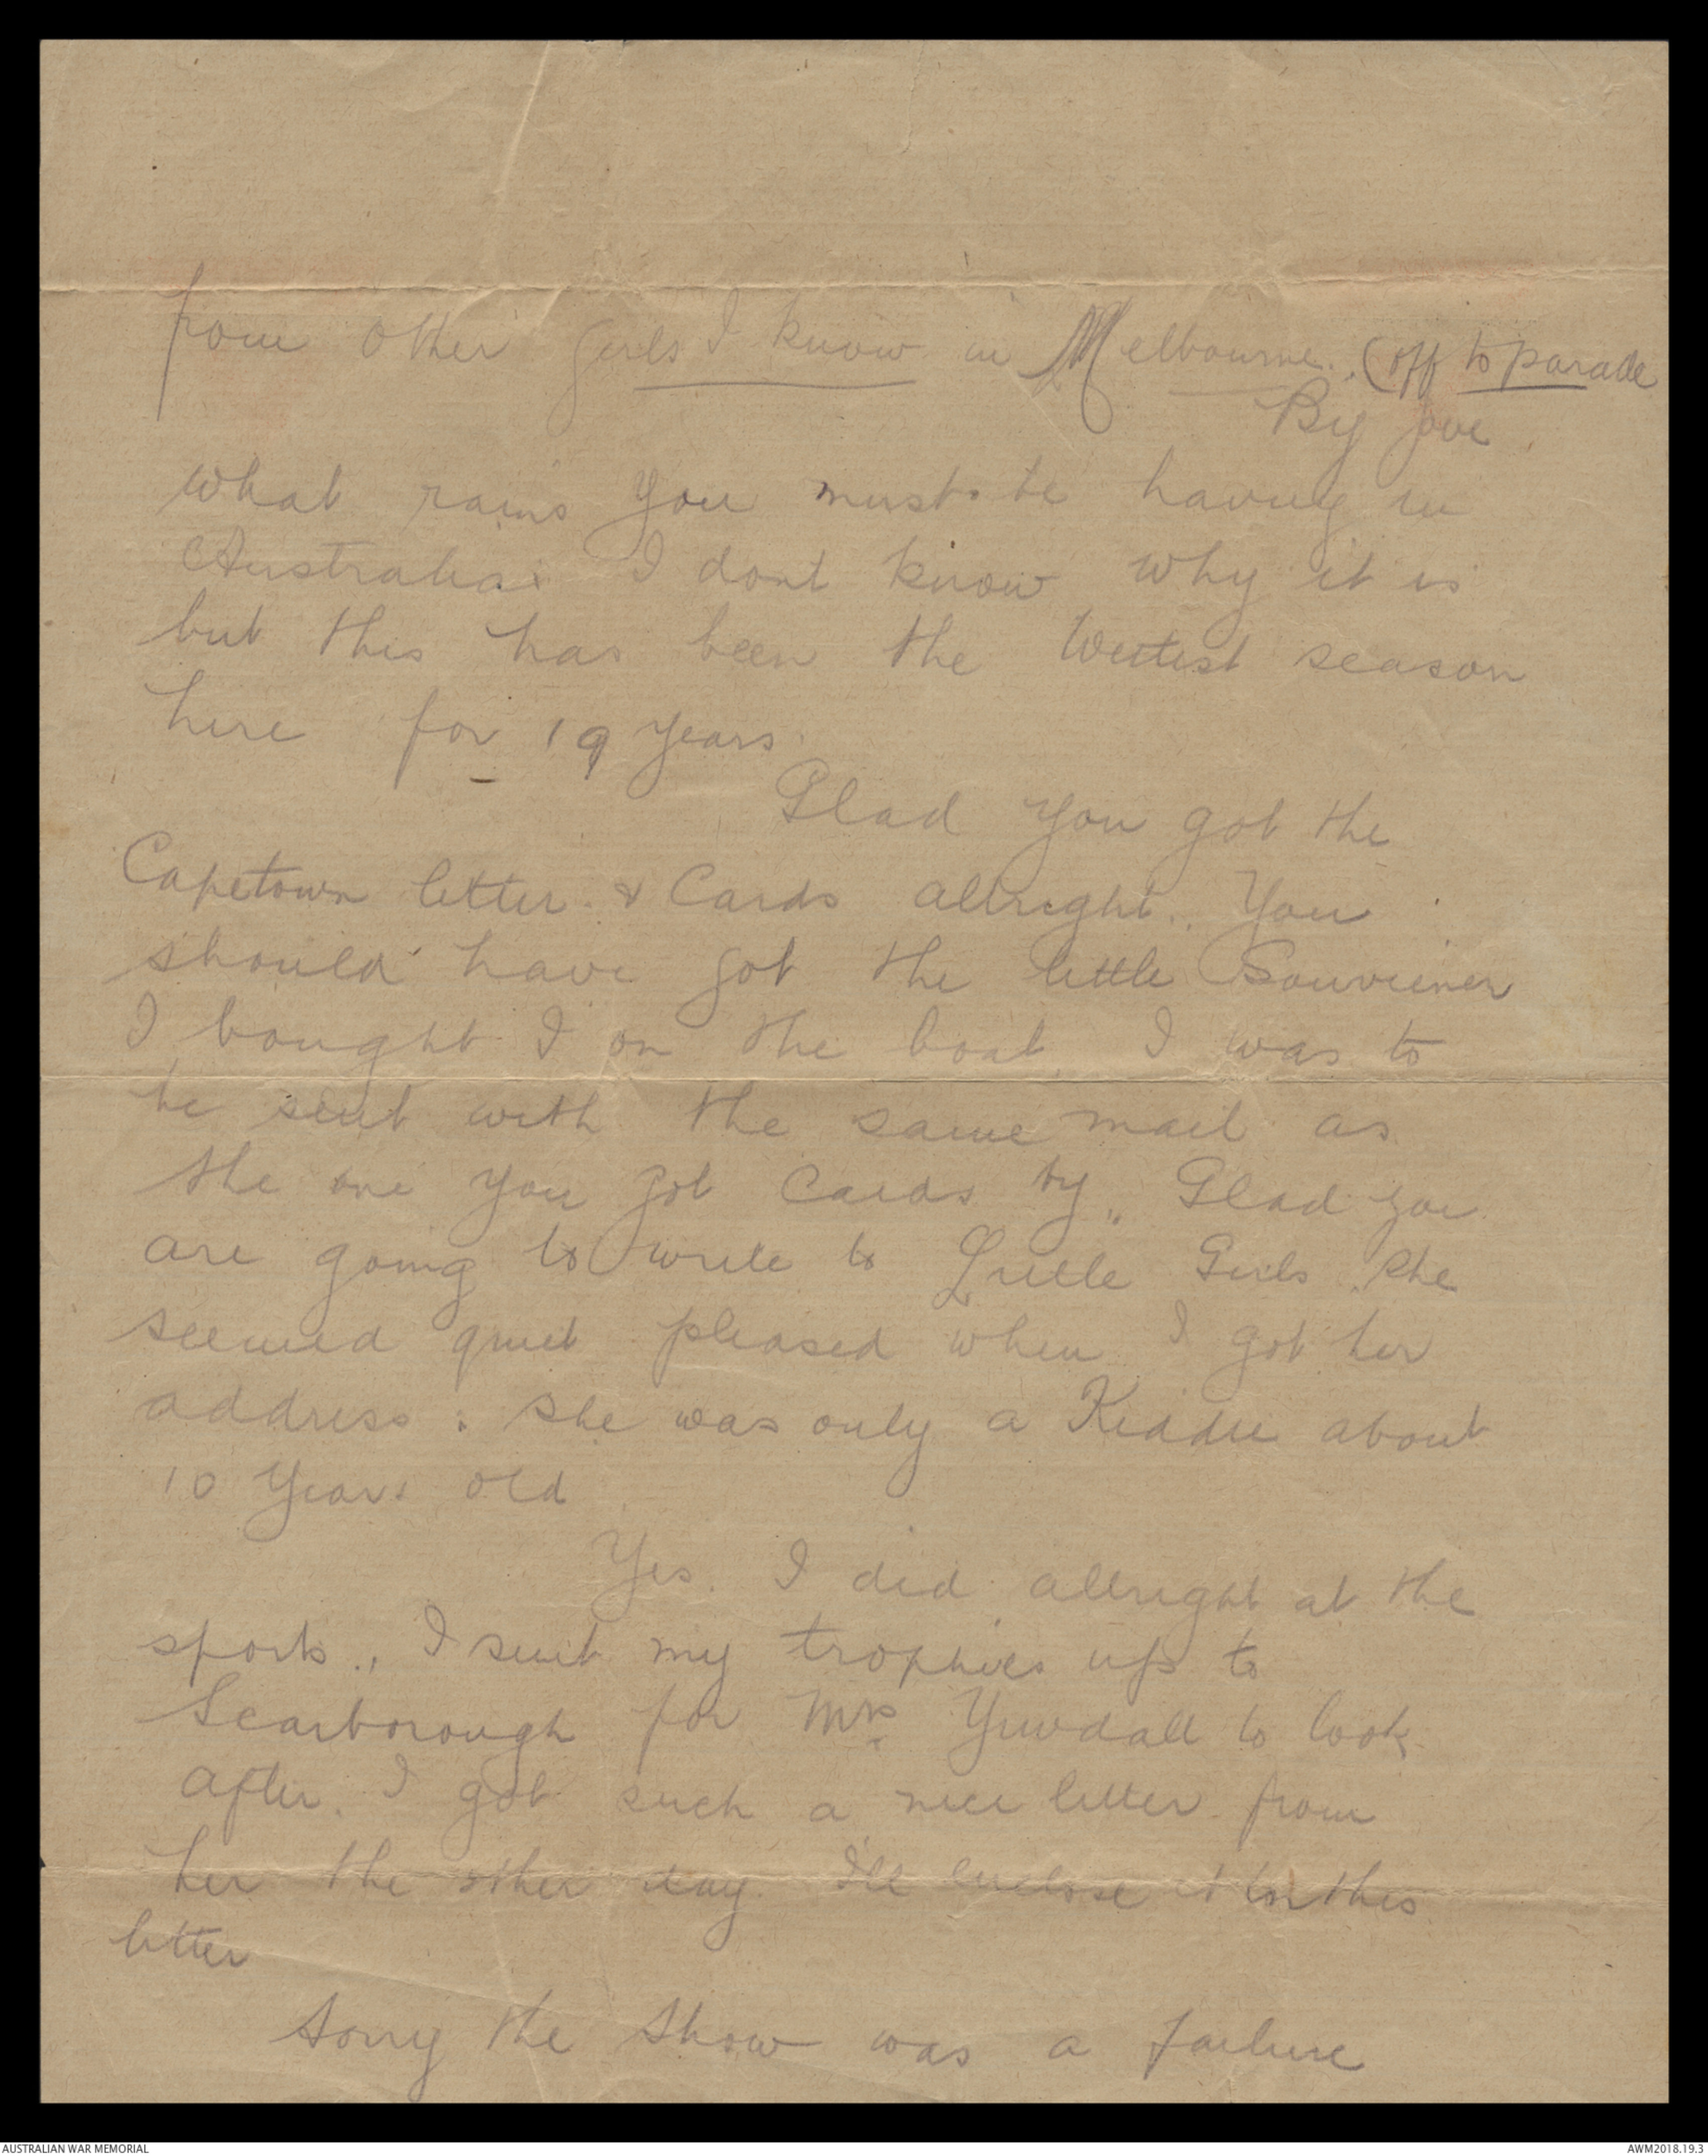 from other girls I know in Melbourne. (off to parade
By jove
what rains you must be having in
Australia. I dont know why it is
but this has been the wettest season
here for 19 years
Glad you got the
Capetown letter. & Cards allright. You
should have got the little Souviener
I bought I on the boat I was to
be sent with the same mail as
the one you got cards by,, Glad you
are going to write to Little Girls she
seemed quiet pleased when I got her
address: she was only a Kiddie about
10 years old
Yes. I did allright at the
sports., I sent my trophies up to
Scarborough for Mrs Yewdall to look
after. I got such a nice letter from
her the other day. I'll enclose it in this
letter
Sorry the Show was a failure
AUSTRALIAN WAR MEMORIAL
AWM2018.19.3